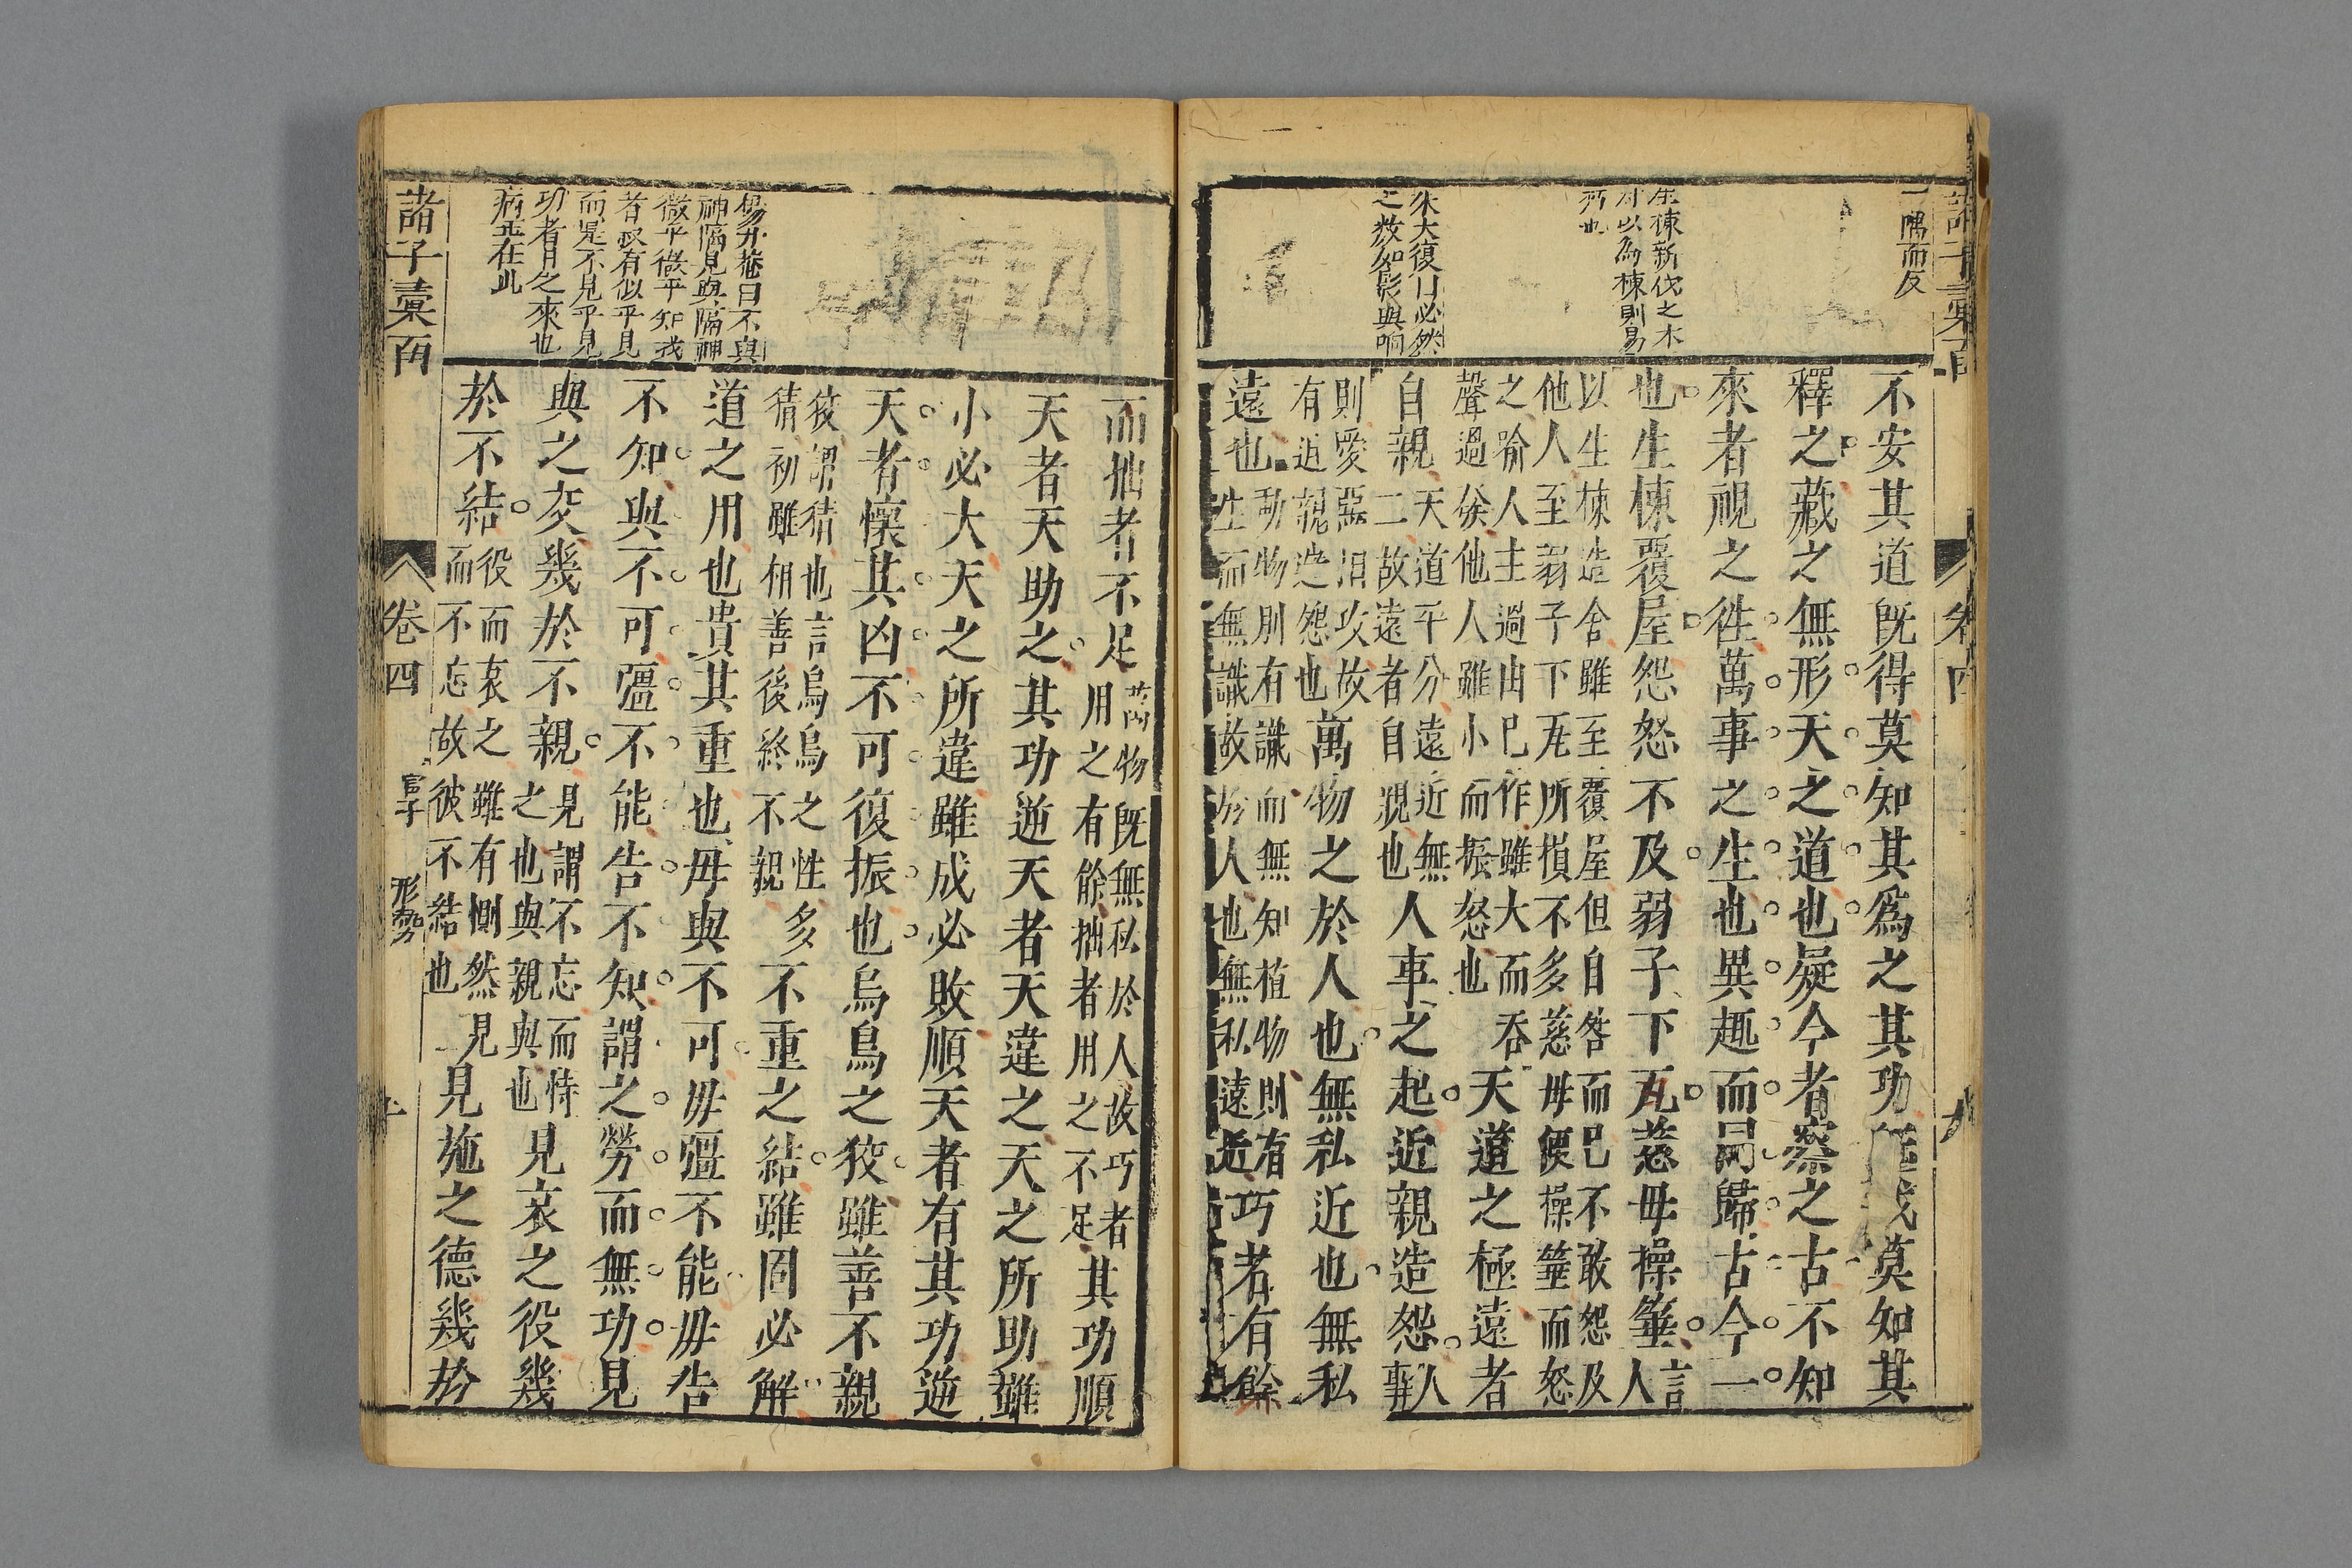 一隅而反
生棟新伐之木
材以為棟則易
朽也
朱大復曰必然
之数如影與响
不安其道既得莫知其爲之其功既成莫知其
釋之藏之無形天之道也疑今者察之古不知
來者視之徃萬事之生也異趣而同歸古今一
也生棟覆屋怨怒不及弱子下瓦慈母操箠言
人
以生棟造舍雖至覆屋但自咎而已不敢怨及
他人至弱子下瓦所損不多慈母便操箠而怒
之喻人主過由已作雖大而吞
聲過矦他人雖小而振怒也
天道之極遠者
自親
天道平分遠近無
二故遠者自親也
人事之起近親造怨
人
事
則愛惡相攻故
有近親造怨也
萬物之於人也無私近也無私
遠也
動物則有識而無知植物則有
生而無識故於人也無私遠近
巧者有餘
諸子彙函
卷四
九
而拙者不足
萬物既無私於人故巧者
用之有餘拙者用之不足
其功順
天者天助之其功逆天者天違之天之所助雖
小必大天之所違雖成必敗順天者有其功逆
天者懷其凶不可復振也烏鳥之狡雖善不親
狡謂猜也言烏烏之性多
猜初雖相善後終不親
不重之結雖固必解
道之用也貴其重也毋與不可毋彊不能毋告
不知與不可彊不能告不知謂之勞而無功見
與之交幾於不親
見謂不忘而恃
之也與親與也
見哀之役幾
於不結
役而哀之雖有惻然見
而不忘故彼不結也
見施之德幾於
楊升菴曰不與
神隔見與隔神
微乎微乎知我
者政有似乎見
而是不見乎見
功者月之來也
病正在此
諸子彙函
卷四
管子
形勢
十